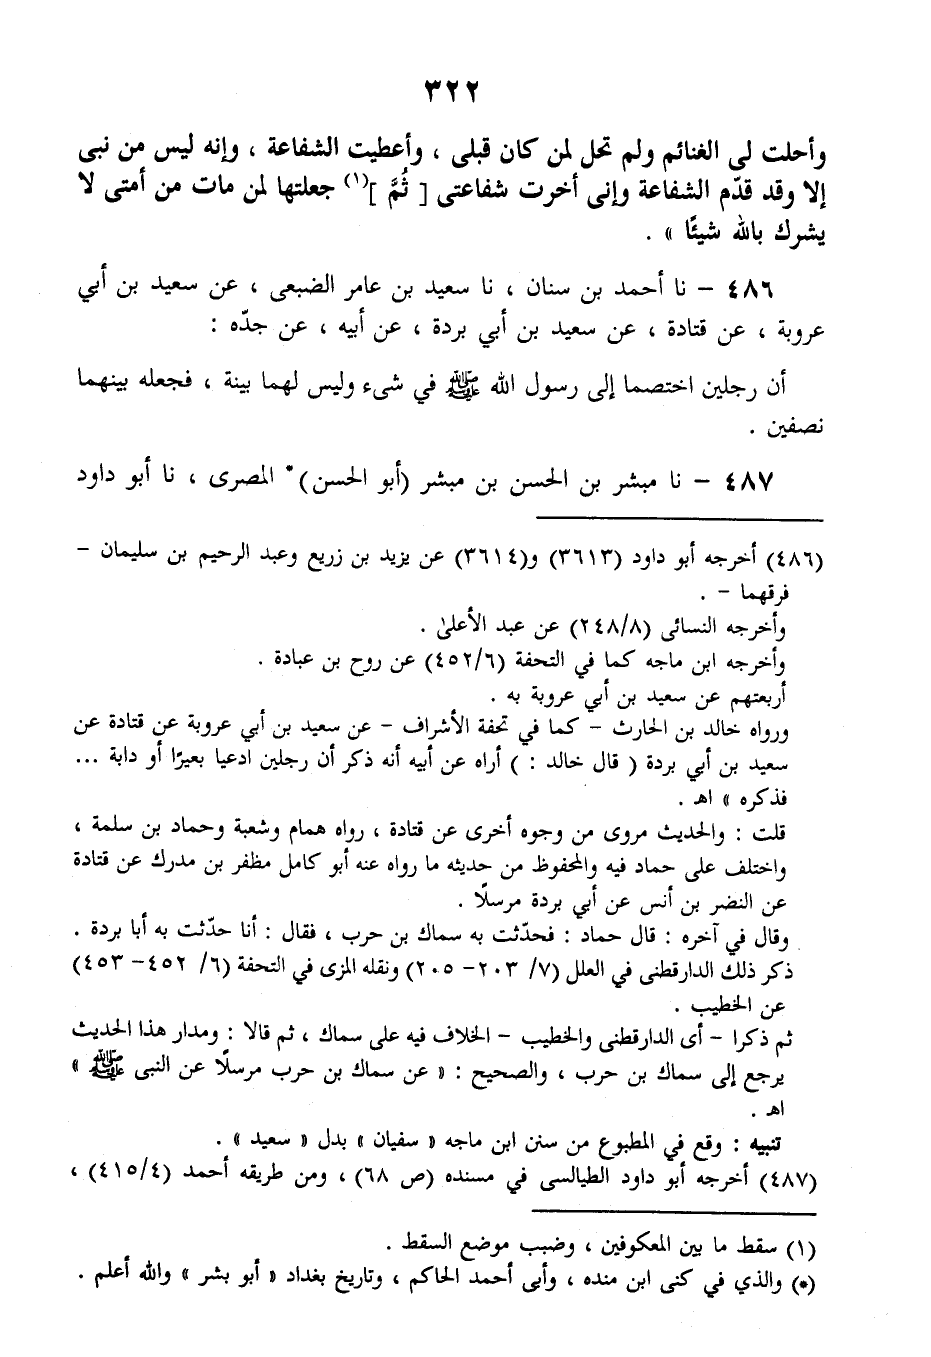 ٣٢٢
وأحلت لى الغنائم ولم تحل لمن كان قبلى ، وأعطيت الشفاعة ، وإنه ليس من نبى
إلا وقد قدّم الشفاعة وإنى أخرت شفاعتى [ ثُمَّ ](١) جعلتها لمن مات من أمتى لا
يشرك بالله شيئًا » .
٤٨٦ – نا أحمد بن سنان ، نا سعيد بن عامر الضبعى ، عن سعيد بن أبي
عروبة ، عن قتادة ، عن سعيد بن أبي بردة ، عن أبيه ، عن جدّه :
أن رجلين اختصما إلى رسول الله ﷺ في شىء وليس لهما بينة ، فجعله بينهما
نصفين .
٤٨٧ – نا مبشر بن الحسن بن مبشر (أبو الحسن)* المصرى ، نا أبو داود
(٤٨٦) أخرجه أبو داود (٣٦١٣) و(٣٦١٤) عن يزيد بن زريع وعبد الرحيم بن سليمان –
فرقهما – .
وأخرجه النسائى (٢٤٨/٨) عن عبد الأعلىٰ .
وأخرجه ابن ماجه كما في التحفة (٤٥٢/٦) عن روح بن عبادة .
أربعتهم عن سعيد بن أبي عروبة به .
ورواه خالد بن الحارث – كما في تحفة الأشراف – عن سعيد بن أبي عروبة عن قتادة عن
سعيد بن أبي بردة ( قال خالد : ) أراه عن أبيه أنه ذكر أن رجلين ادعيا بعيرًا أو دابة ...
فذكره » اهـ .
قلت : والحديث مروى من وجوه أخرى عن قتادة ، رواه همام وشعبة وحماد بن سلمة ،
واختلف على حماد فيه والمحفوظ من حديثه ما رواه عنه أبو كامل مظفر بن مدرك عن قتادة
عن النضر بن أنس عن أبي بردة مرسلًا .
وقال في آخره : قال حماد : فحدّثت به سماك بن حرب ، فقال : أنا حدّثت به أبا بردة .
ذكر ذلك الدارقطنى في العلل (٧/ ٢٠٣– ٢٠٥) ونقله المزى في التحفة (٦/ ٤٥٢– ٤٥٣)
عن الخطيب .
ثم ذكرا – أى الدارقطنى والخطيب – الخلاف فيه على سماك ، ثم قالا : ومدار هذا الحديث
يرجع إلى سماك بن حرب ، والصحيح : « عن سماك بن حرب مرسلًا عن النبى ﷺ »
اهـ .
تنبيه : وقع في المطبوع من سنن ابن ماجه « سفيان » بدل « سعيد » .
(٤٨٧) أخرجه أبو داود الطيالسى في مسنده (ص ٦٨) ، ومن طريقه أحمد (٤١٥/٤) ،
(١) سقط ما بين المعكوفين ، وضبب موضع السقط .
(*) والذي في كنى ابن منده ، وأبى أحمد الحاكم ، وتاريخ بغداد « أبو بشر » والله أعلم .